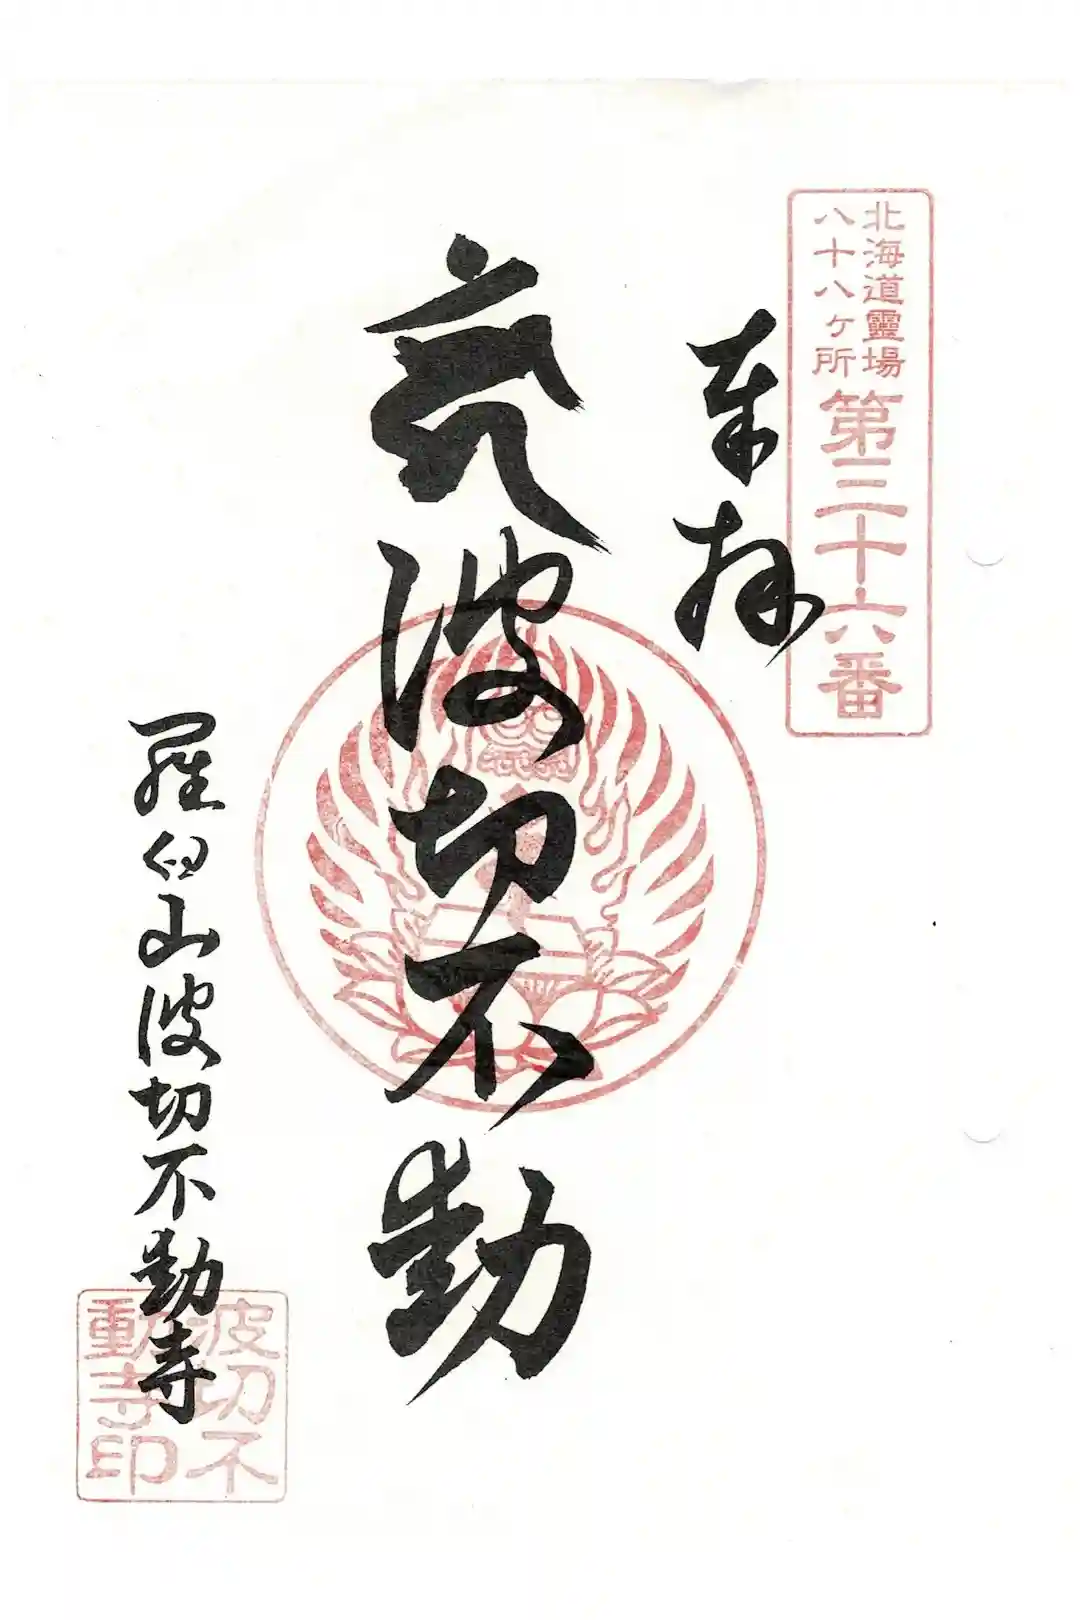 北海道靈場
八十八ヶ所
第三十六番
奉拝
波切不動
羅臼山波切不動寺
波切不
動寺印